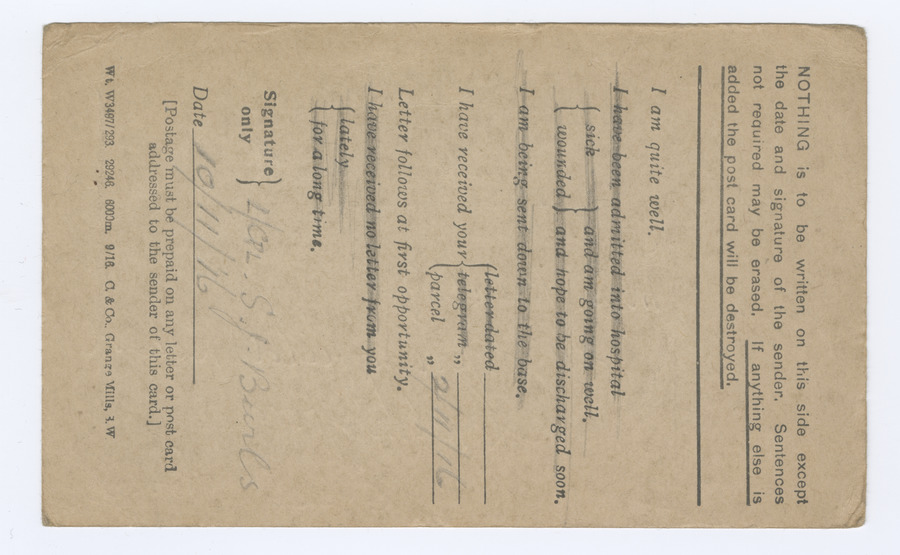 NOTHING is to be written on this side except
the date and signature of the sender. Sentences
not required may be erased. If anything else is
added the post card will be destroyed.
I am quite well.
I have been admitted into hospital
{ sick } and am going on well.
{ wounded } and hope to be discharged soon.
I am being sent down to the base.
I have received your { letter dated
telegram „
parcel „ 2/11/16
Letter follows at first opportunity.
I have received no letter from you
{ lately
for a long time.
Signature
only } S. J.
Date 10/11/16
[Postage must be prepaid on any letter or post card
addressed to the sender of this card.]
Wt. W3467/293. 29246. 6000m. 9/16. C. & Co., Grange Mills, S.W